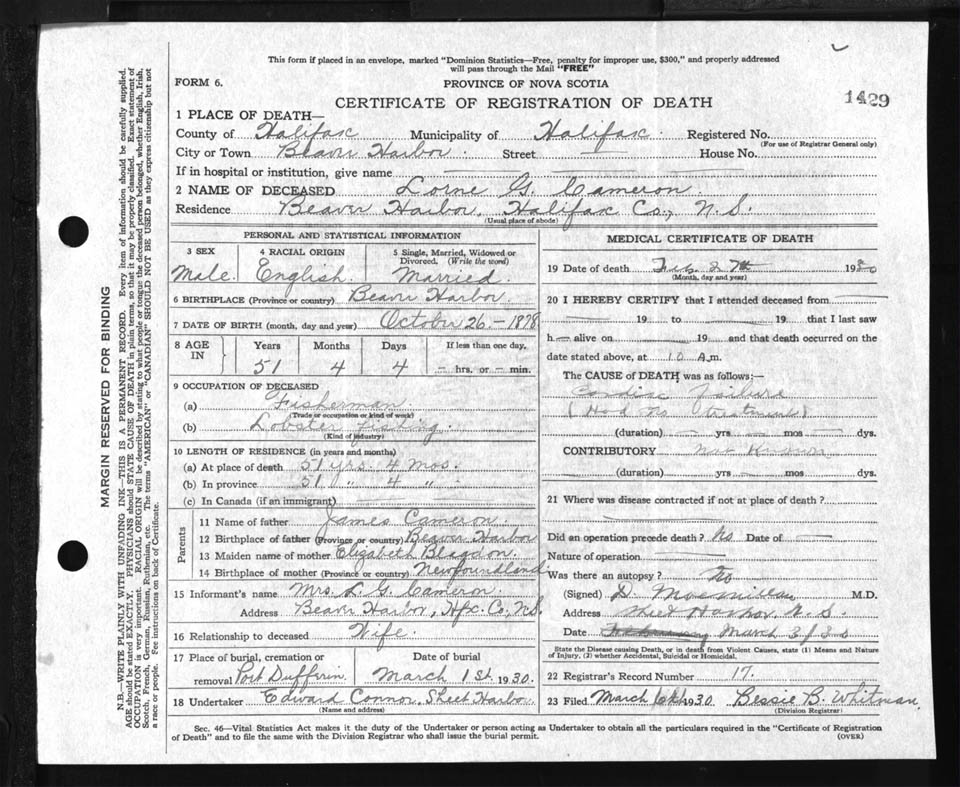 This form if placed in an envelope, marked "Dominion Statistics—Free, penalty for improper use, $300," and properly addressed
will pass through the Mail "FREE"
FORM 6.
PROVINCE OF NOVA SCOTIA
CERTIFICATE OF REGISTRATION OF DEATH
1429
1 PLACE OF DEATH—
County of Halifax Municipality of Halifax. Registered No.
(For use of Registrar General only)
City or Town Beaver Harbor. Street House No.
If in hospital or institution, give name
2 NAME OF DECEASED Lorne G. Cameron.
Residence Beaver Harbor, Halifax Co., N.S.
(Usual place of abode)
PERSONAL AND STATISTICAL INFORMATION
3 SEX 4 RACIAL ORIGIN 5 Single, Married, Widowed or
Divorced. (Write the word)
Male. English. Married.
6 BIRTHPLACE (Province or country) Beaver Harbor.
7 DATE OF BIRTH (month, day and year) October 26 - 1878
8 AGE IN Years Months Days If less than one day,
51 4 4 — hrs. or — min.
9 OCCUPATION OF DECEASED
(a) Fisherman
(Trade or occupation or kind of work)
(b) Lobster fishing.
(Kind of industry)
10 LENGTH OF RESIDENCE (in years and months)
(a) At place of death 51 yrs. 4 Mos.
(b) In province 51 " 4 " .
(c) In Canada (if an immigrant)
Parents
11 Name of father James Cameron.
12 Birthplace of father (Province or country) Beaver Harbor
13 Maiden name of mother Elizabeth Blagdon.
14 Birthplace of mother (Province or country) Newfoundland.
15 Informant's name Mrs. L. G. Cameron
Address Beaver Harbor, Hfx. Co, N.S.
16 Relationship to deceased Wife.
17 Place of burial, cremation or Date of burial
removal Port Dufferin. March 1st. 1930.
18 Undertaker Edward Connor, Sheet Harbor
(Name and address)
MEDICAL CERTIFICATE OF DEATH
19 Date of death Feb. 27th 1930
(Month, day and year)
20 I HEREBY CERTIFY that I attended deceased from
19 to 19 that I last saw
h— alive on 19 and that death occurred on the
date stated above, at 10 A.m.
The CAUSE of DEATH was as follows:—
Cardiac failure
(Had no treatment)
(duration) yrs mos dys.
CONTRIBUTORY Not Known
(duration) yrs mos dys.
21 Where was disease contracted if not at place of death?
Did an operation precede death? No Date of
Nature of operation
Was there an autopsy? No
(Signed) D. M.D.
Address Sheet Harbor, N.S.
Date February March 3/30
State the Disease causing Death, or in death from Violent Causes, state (1) Means and Nature
of Injury, (2) whether Accidental, Suicidal or Homicidal.
22 Registrar's Record Number 17.
23 Filed March 1930 Bessie B. Whitman.
(Division Registrar)
Sec. 46—Vital Statistics Act makes it the duty of the Undertaker or person acting as Undertaker to obtain all the particulars required in the "Certificate of Registration
of Death" and to file the same with the Division Registrar who shall issue the burial permit.
(OVER)
MARGIN RESERVED FOR BINDING
N.B.—WRITE PLAINLY WITH UNFADING INK—THIS IS A PERMANENT RECORD. Every item of information should be carefully supplied.
AGE should be stated EXACTLY. PHYSICIANS should STATE CAUSE OF DEATH in plain terms, so that it may be properly classified. Exact statement of
OCCUPATION is very important. RACIAL ORIGIN will be described by stating to what people or tongue the deceased person belonged, whether English, Irish,
Scotch, French, German, Russian, Ruthenian, etc. The terms "AMERICAN" or "CANADIAN" SHOULD NOT BE USED as they express citizenship but not
a race or people. See instructions on back of Certificate.